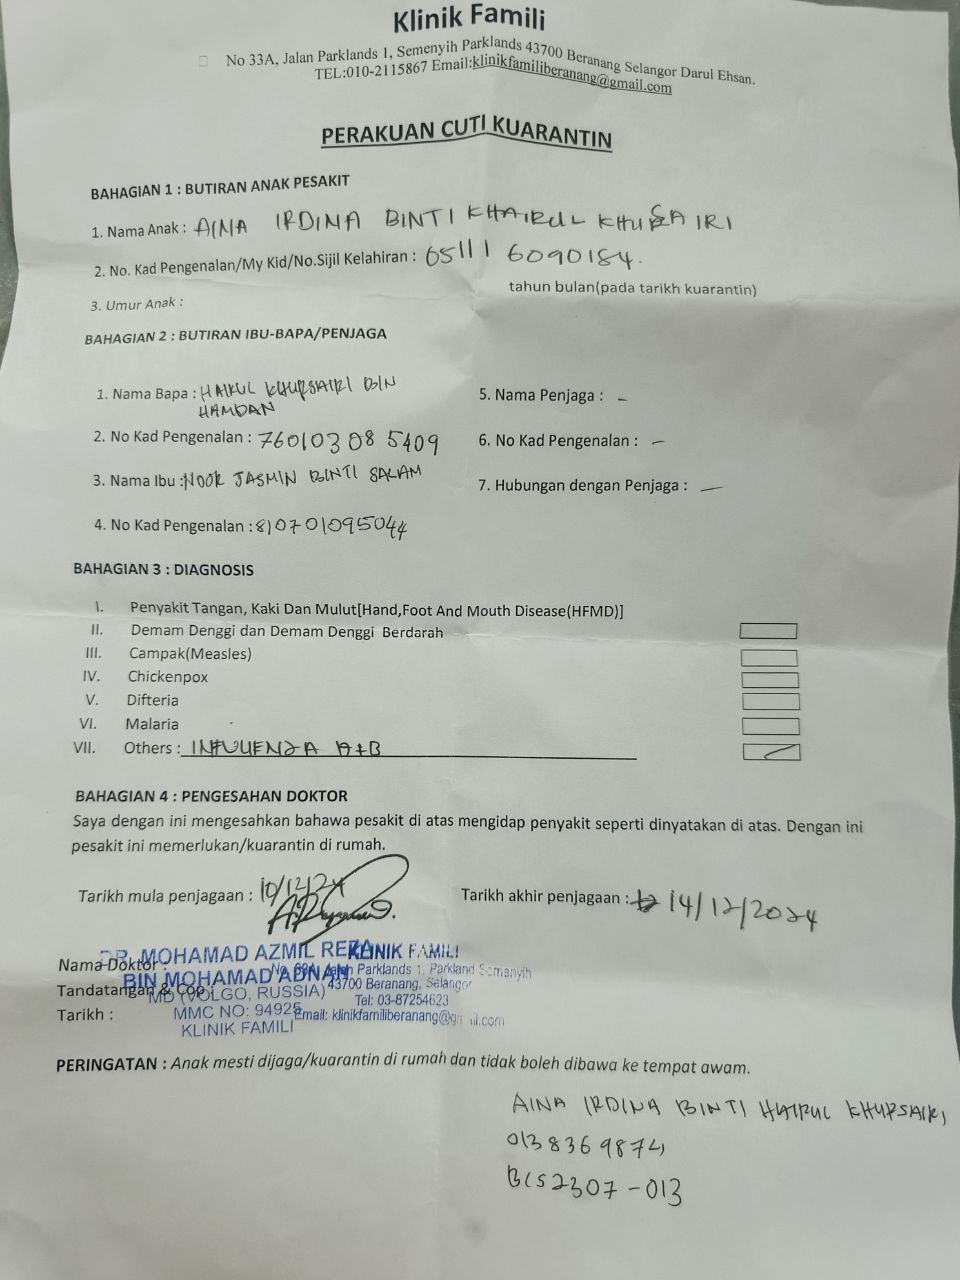 Klinik Famili
No 33A, Jalan Parklands 1, Semenyih Parklands 43700 Beranang Selangor Darul Ehsan.
TEL:010-2115867 Email:klinikfamiliberanang@gmail.com
PERAKUAN CUTI KUARANTIN
BAHAGIAN 1 : BUTIRAN ANAK PESAKIT
1. Nama Anak : AINA IRDINA BINTI KHAIRUL
2. No. Kad Pengenalan/My Kid/No.Sijil Kelahiran : 051116090184.
3. Umur Anak : tahun bulan(pada tarikh kuarantin)
BAHAGIAN 2 : BUTIRAN IBU-BAPA/PENJAGA
1. Nama Bapa : HAIRUL KHURSAIRI BIN
HAMDAN
5. Nama Penjaga : -
2. No Kad Pengenalan : 760103 08 5409
6. No Kad Pengenalan : -
3. Nama Ibu : NOOR JASMIN BINTI SALAM
7. Hubungan dengan Penjaga : -
4. No Kad Pengenalan : 810701095044
BAHAGIAN 3 : DIAGNOSIS
I. Penyakit Tangan, Kaki Dan Mulut[Hand,Foot And Mouth Disease(HFMD)]
II. Demam Denggi dan Demam Denggi Berdarah
III. Campak(Measles)
IV. Chickenpox
V. Difteria
VI. Malaria
VII. Others : INFLUENZA A+B
BAHAGIAN 4 : PENGESAHAN DOKTOR
Saya dengan ini mengesahkan bahawa pesakit di atas mengidap penyakit seperti dinyatakan di atas. Dengan ini
pesakit ini memerlukan/kuarantin di rumah.
Tarikh mula penjagaan : 10/12/24
Tarikh akhir penjagaan : 14/12/2024
Nama Doktor :
Tandatangan & Cop :
Tarikh :
DR. MOHAMAD AZMIL REZA
BIN MOHAMAD ADNAN
MD (VOLGO, RUSSIA)
MMC NO: 94925
KLINIK FAMILI
KLINIK FAMILI
No. 33A, Jalan Parklands 1, Parkland Semenyih
43700 Beranang, Selangor
Tel: 03-87254623
Email: klinikfamiliberanang@gmail.com
PERINGATAN : Anak mesti dijaga/kuarantin di rumah dan tidak boleh dibawa ke tempat awam.
AINA IRDINA BINTI HAIRUL KHURSAIRI
BCS2307-013